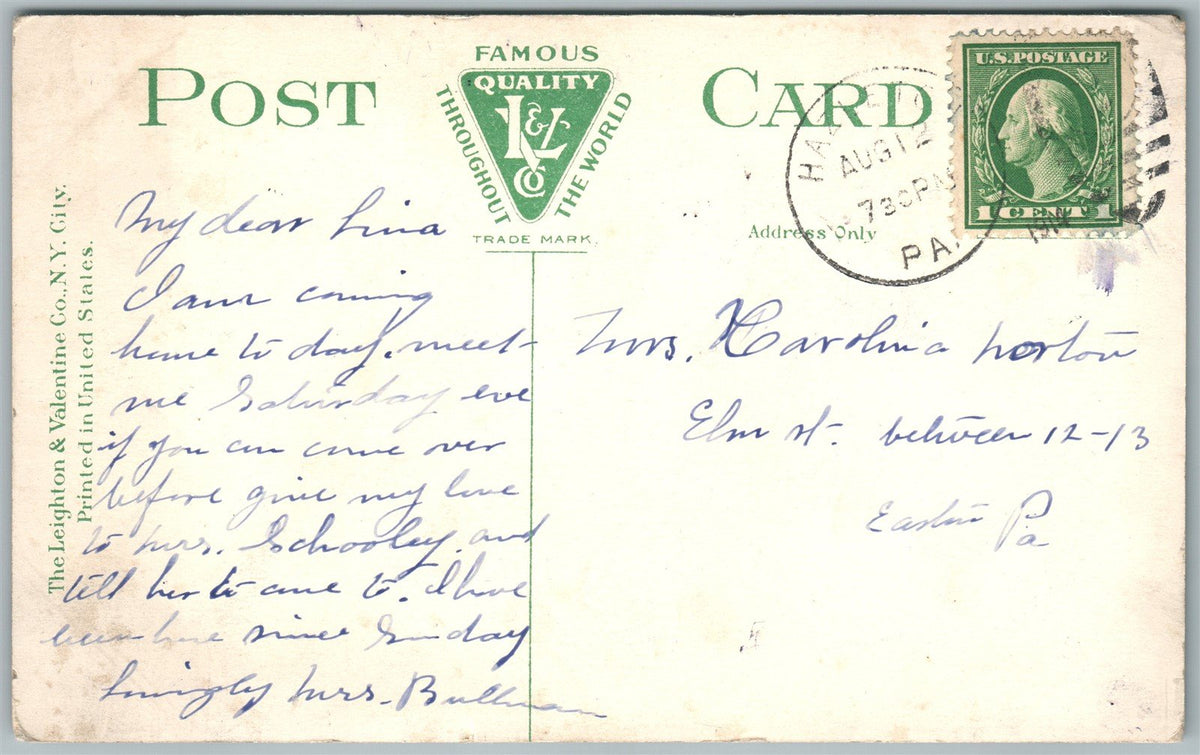 POST CARD
FAMOUS
QUALITY
THROUGHOUT
THE WORLD
L&V
Co
TRADE MARK.
Address Only
AUG 12
730 PM
PA.
U.S. POSTAGE
1 CENT 1
The Leighton & Valentine Co., N.Y. City.
Printed in United States.
My dear Lina
I am coming
home to day. meet
me Saturday eve
if you can come over
before give my love
to Mrs. Schooley. and
tell her to come to. I have
been here since Sunday
Lovingly Mrs. Bullman
Mrs. Karolina Norton
Elm st. between 12-13
Easton Pa